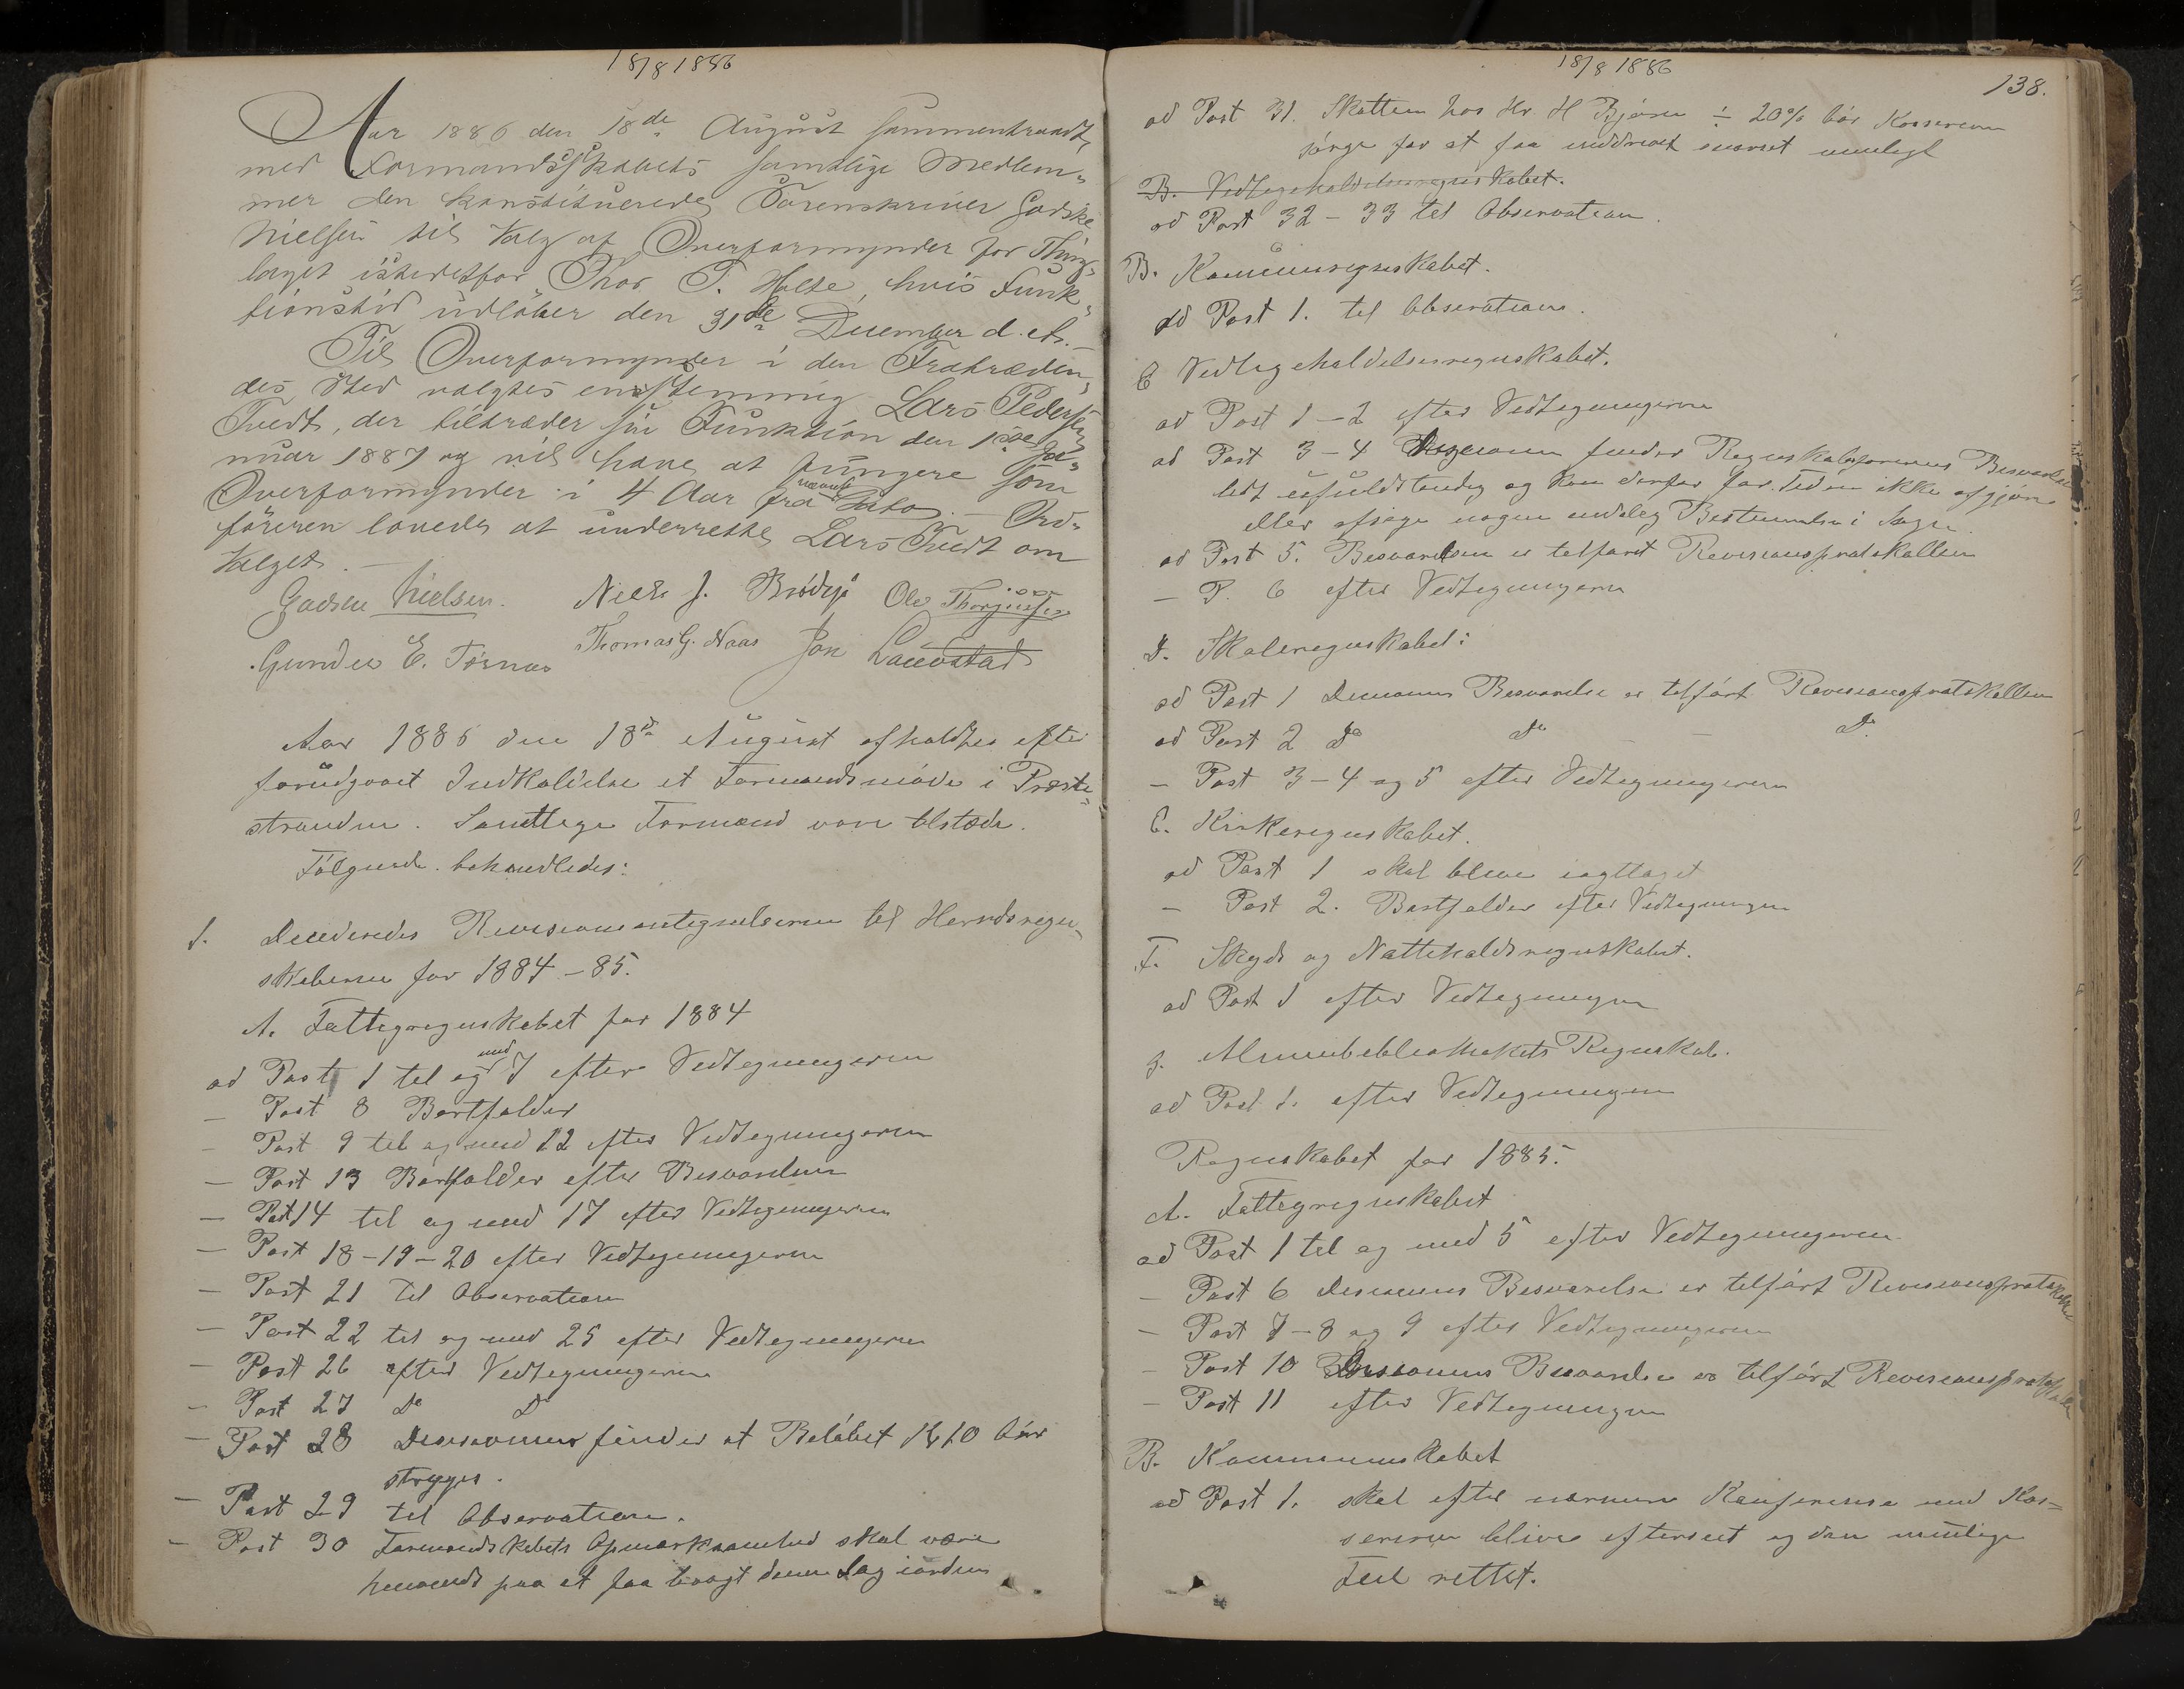 18/8 1886
Aar 1886 den 18de August sammentraadte
med Formandsskabets samtlige Medlem-
mer den konstituerede Sorenskriver Godske
Nielsen til Valg af Overformynder for Thing-
laget istedetfor Thor T. Holte, hvis Funk-
tionstid udløber den 31de December d. A.
Til Overformynder i den Fratræden-
des Sted valgtes enstemmig Lars Pedersen
Tvedt, der tiltræder sin Funktion den 1ste Ja-
nuar 1887 og vil have at fungere som
Overformynder i 4 Aar fra nævnte Dato. - Ord-
føreren lovede at underrette Lars Tvedt om
Valget. -
Godske Nielsen. Niels J. Brødsjø Ole Thorgrimsen
Gunder E. Tørnes Thomas G. Naas Jon Laavstad
Aar 1886 den 18de August afholdtes efter
forudgaaet Indkaldelse et Formandsmøde i Præste-
stranden. Samtlige Formænd vare tilstede.
Følgende behandledes:
1. Decideredes Revisionsantegnelserne til Herredsregn-
skaberne for 1884-85.
A. Fattigregnskabet for 1884
ad Post 1 til og med 7 efter Vedtegningerne
- Post 8 Bortfalder
- Post 9 til og med 12 efter Vedtegningerne
- Post 13 Bortfalder efter Besvarelsen
- Post 14 til og med 17 efter Vedtegningerne
- Post 18-19-20 efter Vedtegningerne
- Post 21 til Observation
- Post 22 til og med 25 efter Vedtegningerne
- Post 26 efter Vedtegningerne
- Post 27 Do Do
- Post 28 Decisionen finder at Beløbet bør
stryges.
- Post 29 til Observation.
- Post 30 Formandskabets Opmærksomhed skal være
henvendt paa at faa bragt denne Sag iorden
18/8 1886
138.
ad Post 31. Skatten hos Hr. H Bjørn ÷ 20% bør Kassereren
sørge for at faa inddrevet snarest muligt
B. Vedligeholdelsesregnskabet.
ad Post 32-33 til Observation.
B. Kommuneregnskabet.
ad Post 1. til Observation.
C Vedligeholdelsesregnskabet.
ad Post 1-2 efter Vedtegningerne
ad Post 3-4 finder Regnskabsførerens Besvarelse
lidt ufuldstændig og kan derfor for Tiden ikke afgjøre
eller afsige nogen endelig Bestemmelse i Sagen
ad Post 5. Besvarelsen er tilført Revisionsprotokollen
- P. 6 efter Vedtegningerne
D. Skoleregnskabet:
ad Post 1 Decisionens Besvarelse er tilført Revisionsprotokollen
ad Post 2 Do Do - - Do
- Post 3-4 og 5 efter Vedtegningerne
E. Kirkeregnskabet.
ad Post 1 skal blive iagttaget
- Post 2. Bortfalder efter Vedtegningen
F. Skyds og Natteholdsregnskabet.
ad Post 1 efter Vedtegningen
G. Almuebibliothekets Regnskab.
ad Post 1. efter Vedtegningen
Regnskabet for 1885.
A. Fattigregnskabet
ad Post 1 til og med 5 efter Vedtegningerne
- Post 6 Decisionens Besvarelse er tilført Revisionsprotokollen
- Post 7-8 og 9 efter Vedtegningerne
- Post 10 Decisionens Besvarelse er tilført Revisionsprotokollen
- Post 11 efter Vedtegningen
B. Kommuneskabet
ad Post 1. skal efter nærmere Konference med Kas-
sereren blive efterseet og den mulige
Feil rettet.